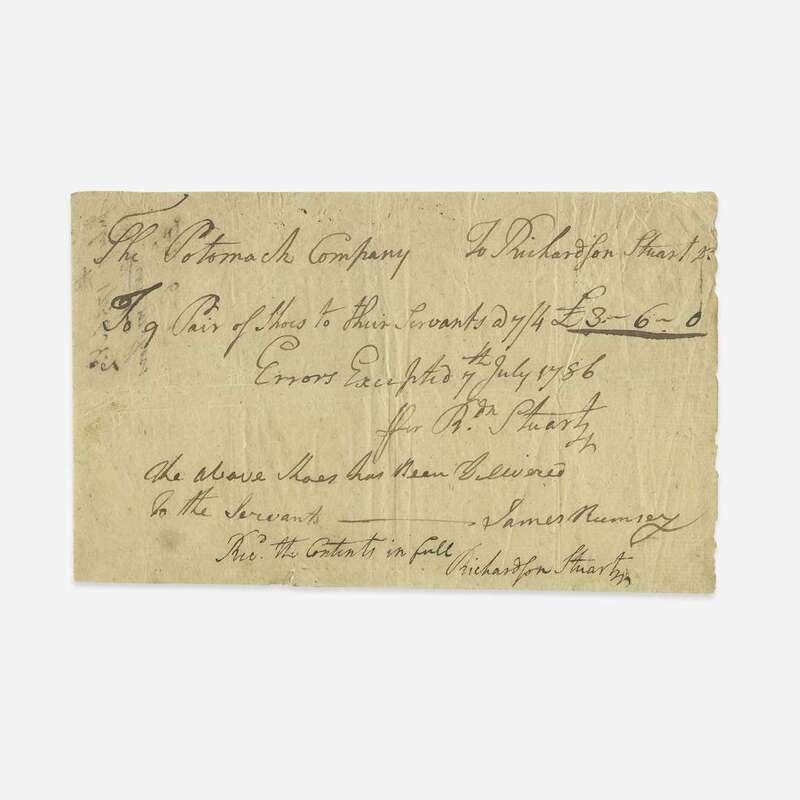 The Potomack Company To Richardson Stuart Dr
To 9 Pair of Shoes to their Servants @ 7/4 £3-6-0
Errors Excepted 7th July 1786
ffer Rdn Stuart
the above Shoes has Been Delivered
To the Servants — James Rumsey
Recd. the Contents in full
Richardson Stuart